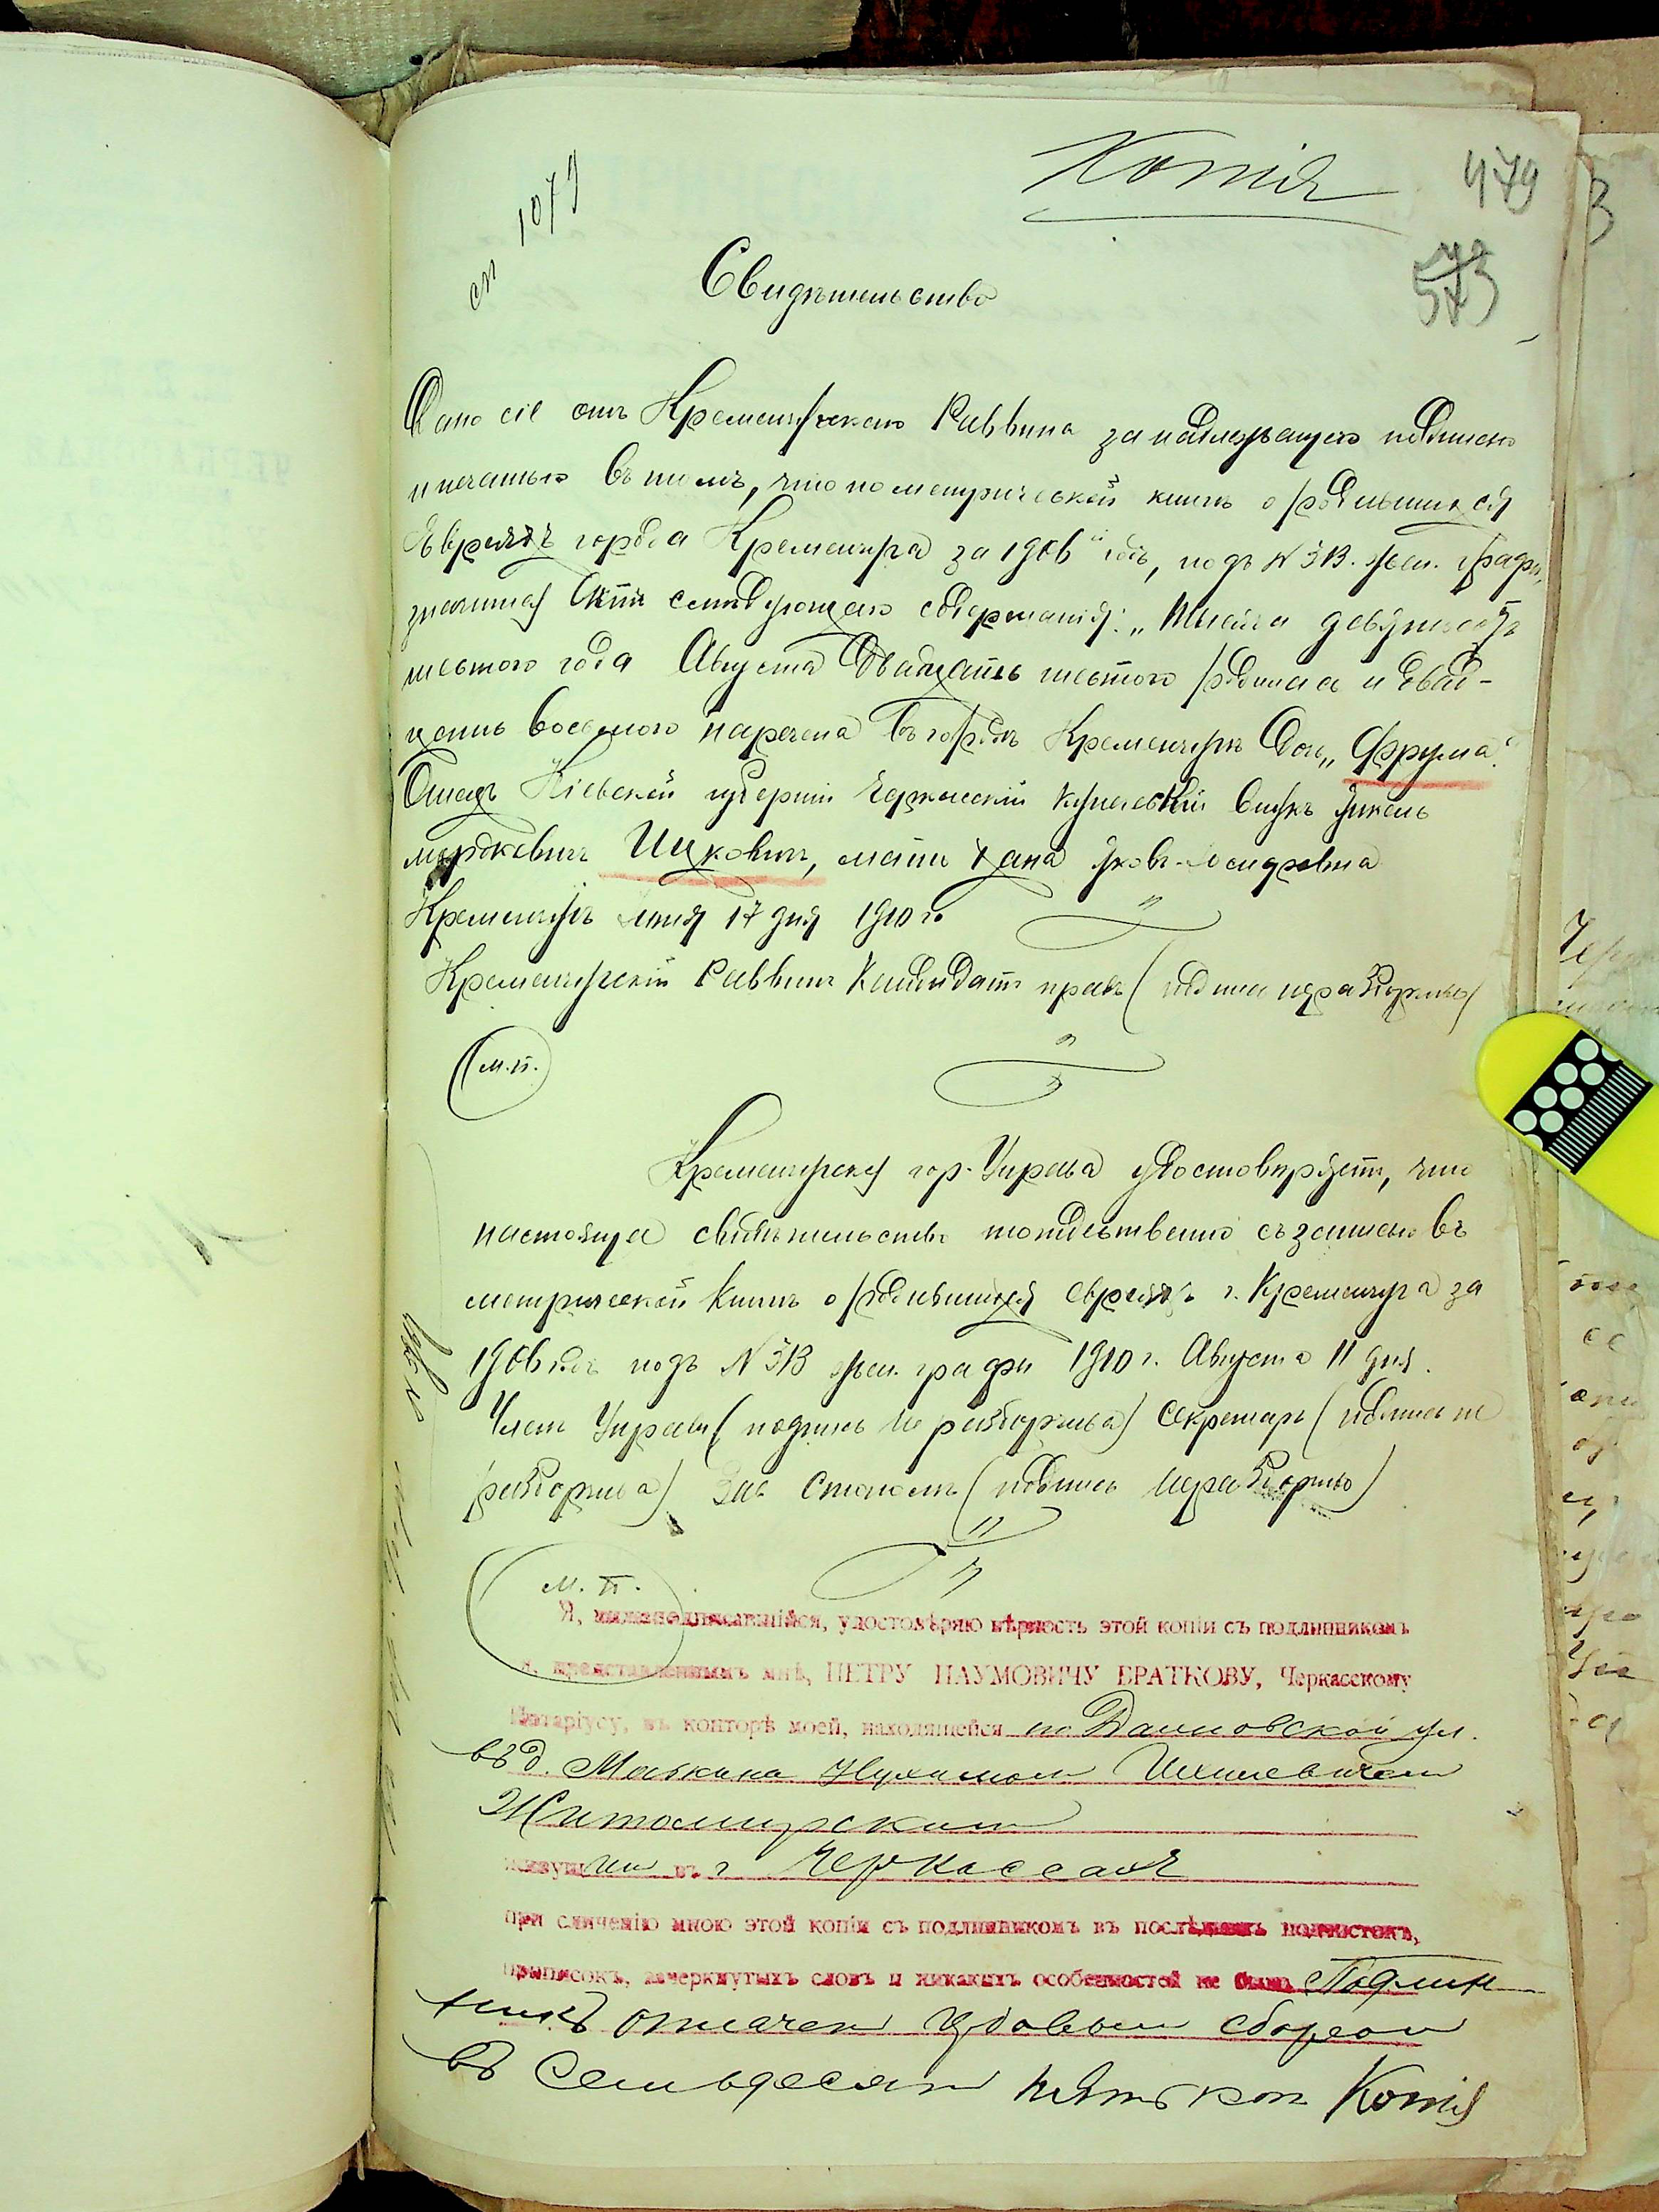 Копія
479
573
сп 1079
Свидѣтельство
Дано сіе отъ Кременчугскаго Раввина за надлежащею подписью
и печатью въ томъ, что по метрической книгѣ о родившихся
Евреяхъ города Кременчуга за 1906 годъ, подъ № 313. жен. графы,
значится Актъ слѣдующаго содержанія: „Тысяча девятьсотъ
шестого года Августа двадцать шестого родилась и двад-
цать восьмого наречена въ городѣ Кременчугѣ дочь „Фрума“.
Отецъ Кіевской губерніи Черкасскій купеческій внукъ
Мордкович Ицкович, мать Хана
Кременчугъ 17 дня 1910 г.
Кременчугскій Раввинъ Кандидатъ правъ (подпись неразборчива)
М.П.
Кременчугская гор. Управа удостовѣряетъ, что
настоящее свидѣтельство тождественно съ записью въ
метрической книгѣ о родившихся евреяхъ г. Кременчуга за
1906 годъ подъ № 313 жен. графы 1910 г. Августа 11 дня.
Членъ Управы (подпись неразборчива) Секретарь (подпись не
разборчива) Зав. Столомъ (подпись неразборчива)
М. П.
Я, нижеподписавшійся, удостовѣряю вѣрность этой копіи съ подлинникомъ
я, представленнымъ мнѣ, ПЕТРУ НАУМОВИЧУ БРАТКОВУ, Черкасскому
Нотаріусу, въ конторѣ моей, находящейся по Дахновской ул.
въ д. Маркина Нухимомъ
Житомирскимъ
живущимъ въ г. Черкассахъ
при сличеніи мною этой копіи съ подлинникомъ въ послѣднемъ подчистокъ,
приписокъ, зачеркнутыхъ словъ и никакихъ особенностей не было Подлин
никъ оплаченъ гербовымъ сборомъ
въ семьдесятъ пять коп Копія